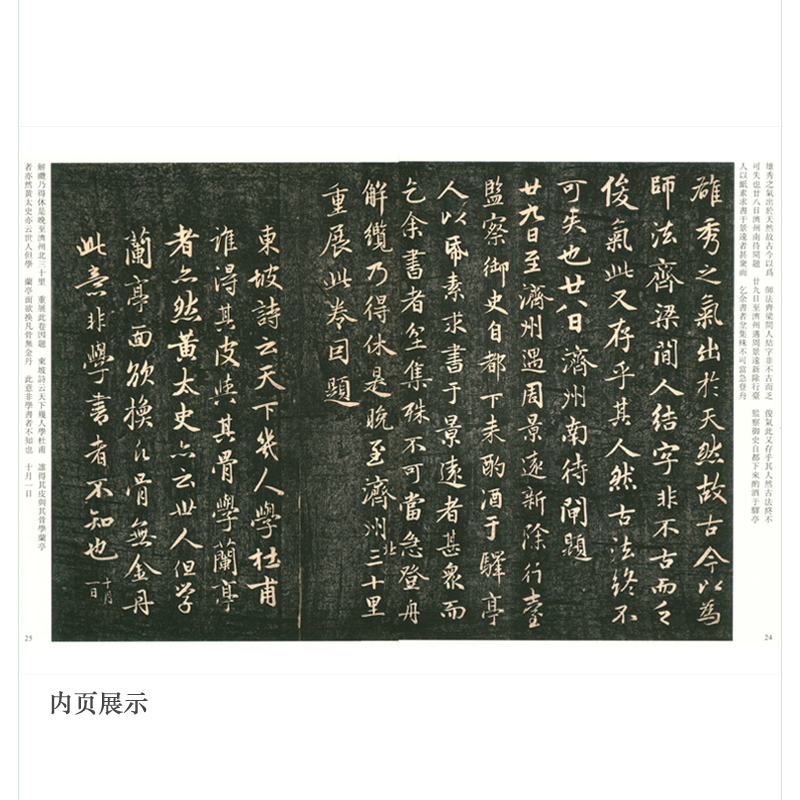 雄秀之氣出於天然故古今以爲　師法齊梁間人結字非不古而乏　俊氣此又存乎其人然古法終不
可失也廿八日濟州南待閘題　廿九日至濟州遇周景遠新除行臺　監察御史自都下來酌酒于驛亭
人以紙素求書于景遠者甚衆而　乞余書者坌集殊不可當急登舟
24
雄秀之氣出於天然故古今以為
師法齊梁間人結字非不古而乏
俊氣此又存乎其人然古法終不
可失也廿八日濟州南待閘題
廿九日至濟州遇周景遠新除行臺
監察御史自都下来酌酒于驛亭
人以帋素求書于景遠者甚衆而
乞余書者坌集殊不可當急登舟
解纜乃得休是晚至濟州北三十里
重展此卷因題
東坡詩云天下幾人學杜甫
誰得其皮與其骨學蘭亭
者亦然黃太史亦云世人但学
蘭亭面欲換凡骨無金丹
此意非學書者不知也十月一日
解纜乃得休是晚至濟州北三十里　重展此卷因題　東坡詩云天下幾人學杜甫　誰得其皮與其骨學蘭亭
者亦然黄太史亦云世人但學　蘭亭面欲換凡骨無金丹　此意非學書者不知也　十月一日
25
内页展示